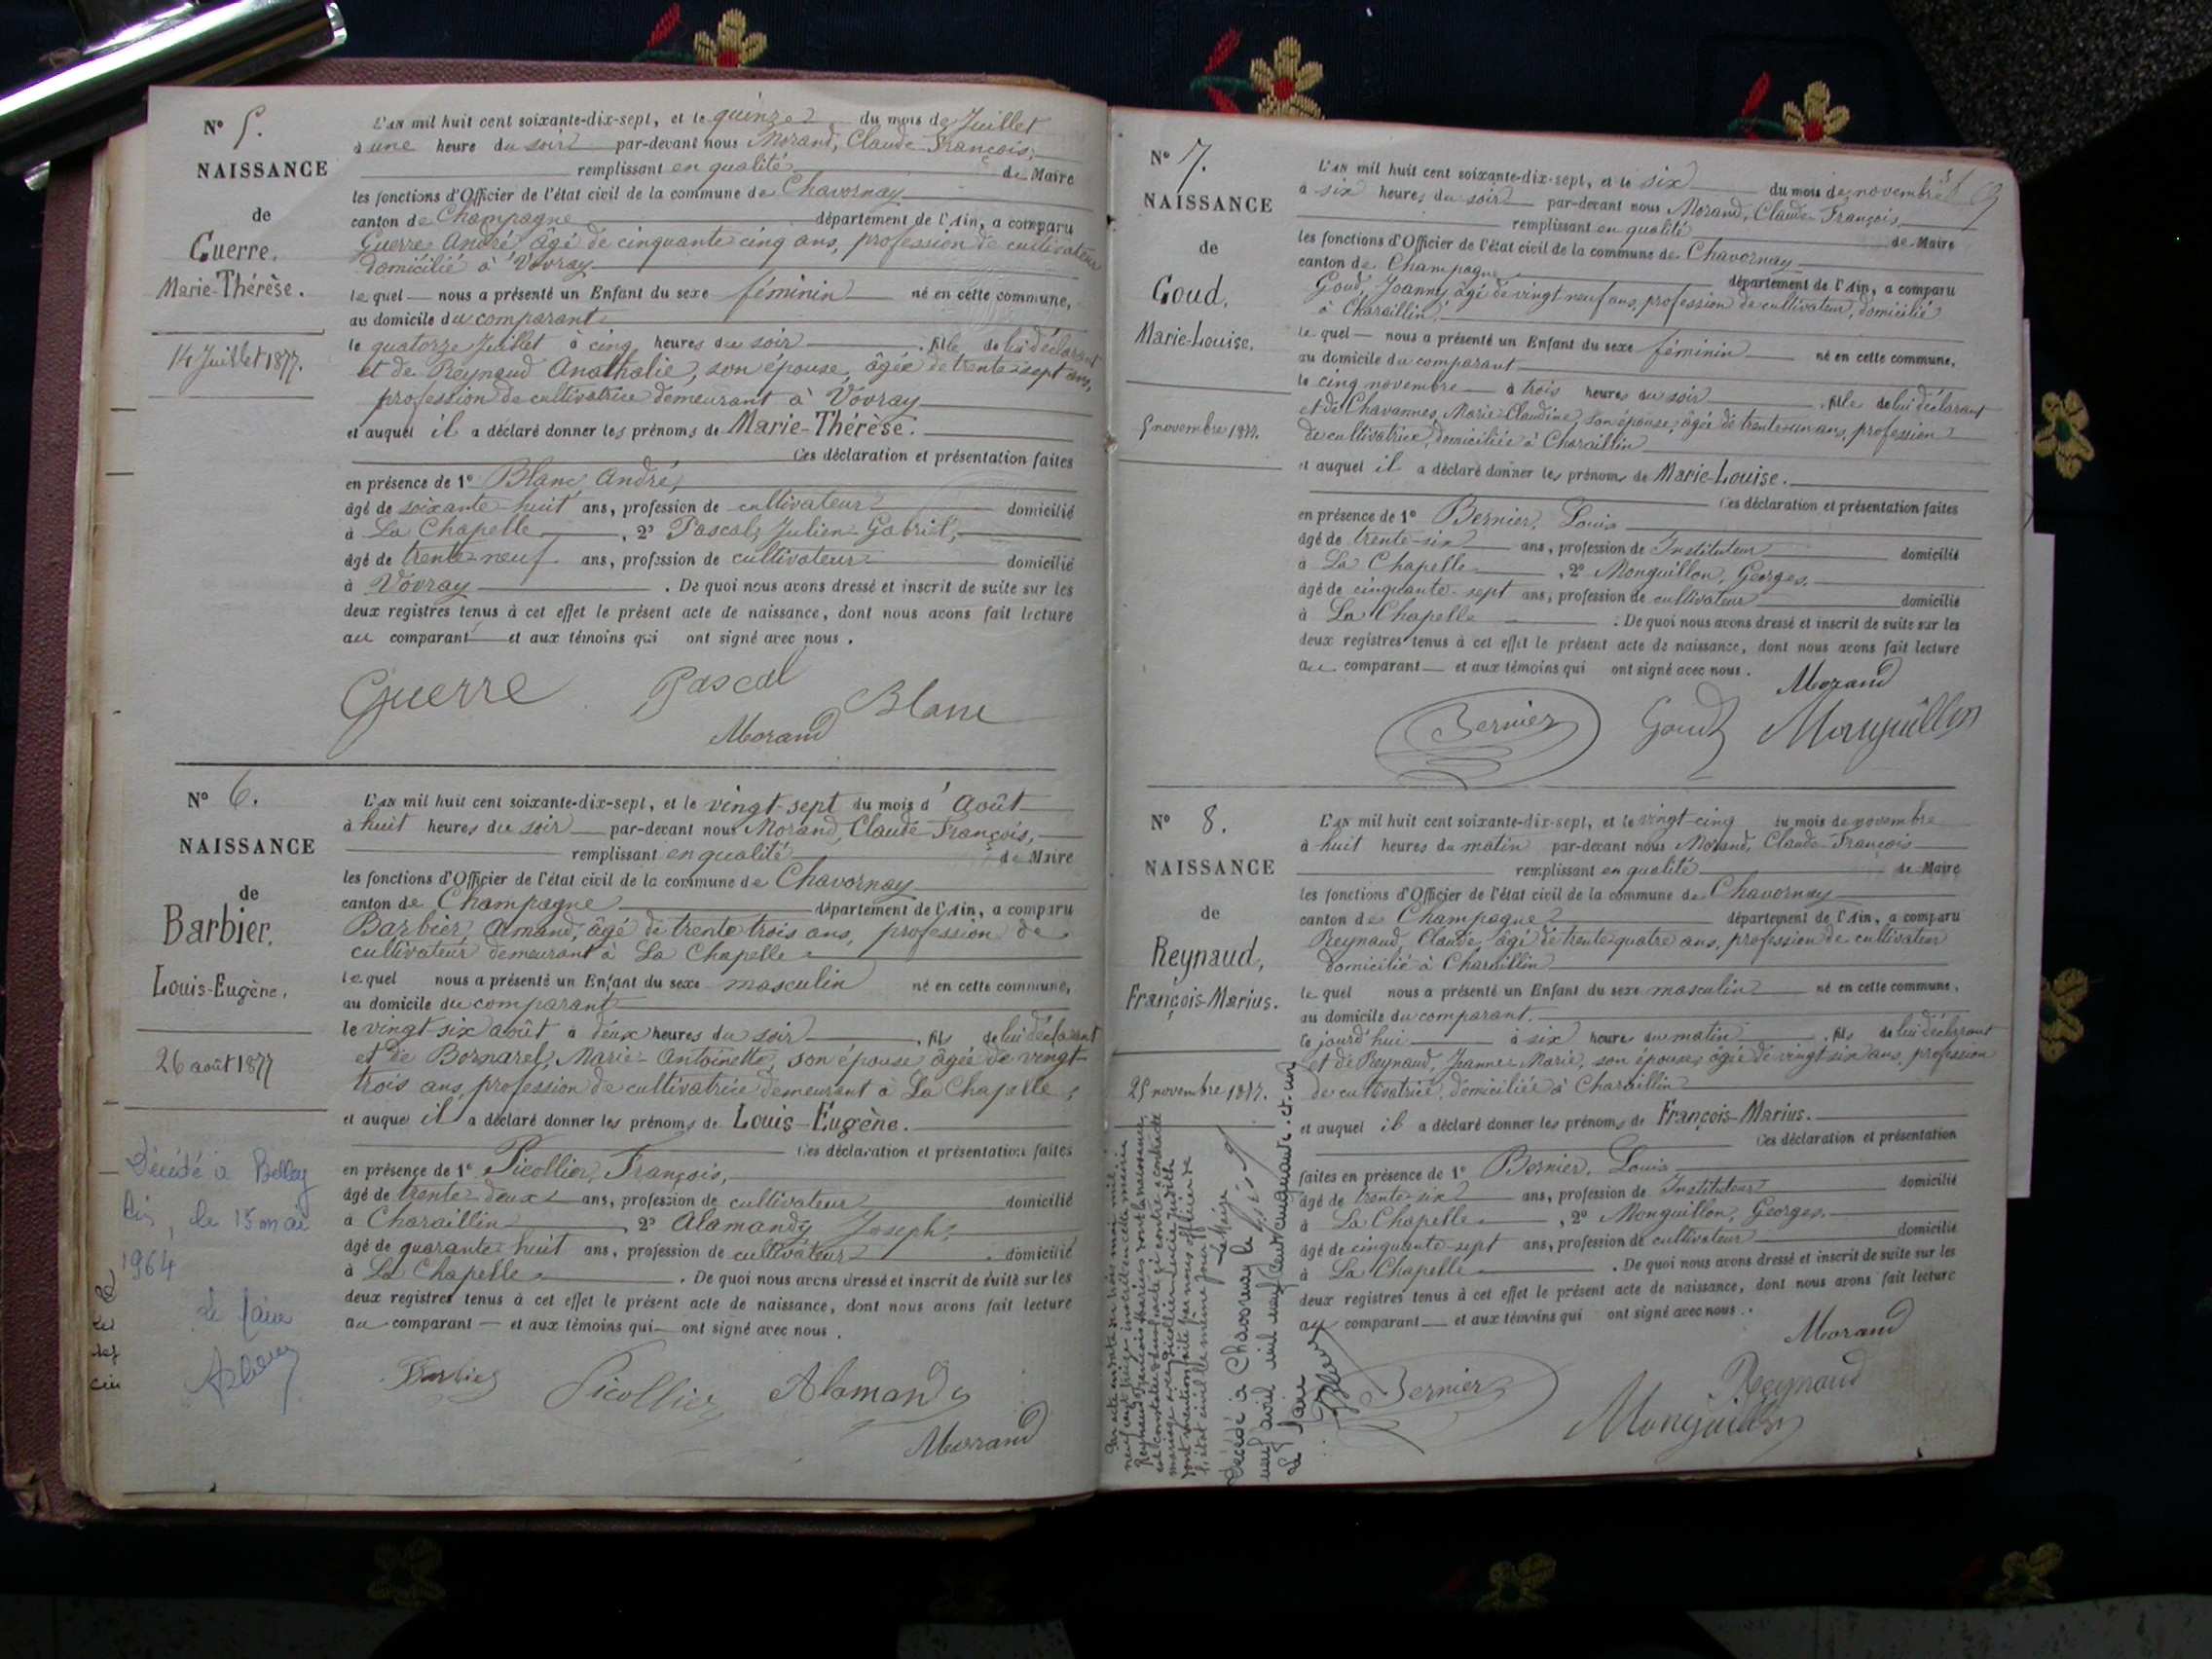 N° 5.
NAISSANCE
de
Guerre.
Marie-Thérèse.
14 Juillet 1877.
L'AN mil huit cent soixante-dix-sept, et le quinze du mois de Juillet
à une heure du soir par-devant nous Morand, Claude François,
remplissant en qualité de Maire
les fonctions d'Officier de l'état civil de la commune de Chavornay
canton de Champagne département de l'Ain, a comparu
Guerre André, âgé de cinquante cinq ans, profession de cultivateur
domicilié à Vovray
lequel nous a présenté un Enfant du sexe féminin né en cette commune,
au domicile du comparant
le quatorze Juillet à cinq heures du soir, fille de lui déclarant
et de Reynaud Anathalie, son épouse, âgée de trente-sept ans,
profession de cultivatrice demeurant à Vovray
et auquel il a déclaré donner les prénoms de Marie-Thérèse.
Ces déclaration et présentation faites
en présence de 1° Blanc André,
âgé de soixante huit ans, profession de cultivateur domicilié
à La Chapelle, 2° Pascal, Julien-Gabriel,
âgé de trente-neuf ans, profession de cultivateur domicilié
à Vovray. De quoi nous avons dressé et inscrit de suite sur les
deux registres tenus à cet effet le présent acte de naissance, dont nous avons fait lecture
au comparant et aux témoins qui ont signé avec nous.
Guerre Pascal Blanc
Morand
N° 6.
NAISSANCE
de
Barbier.
Louis-Eugène.
26 août 1877
Décédé à Belley
Ain, le 15 mai
1964
Le Maire
L'AN mil huit cent soixante-dix-sept, et le vingt-sept du mois d'Août
à huit heures du soir par-devant nous Morand, Claude François,
remplissant en qualité de Maire
les fonctions d'Officier de l'état civil de la commune de Chavornay
canton de Champagne département de l'Ain, a comparu
Barbier, Amand, âgé de trente trois ans, profession de
cultivateur demeurant à La Chapelle
lequel nous a présenté un Enfant du sexe masculin né en cette commune,
au domicile du comparant
le vingt six août à deux heures du soir, fils de lui déclarant
et de Bornarel, Marie-Antoinette, son épouse âgée de vingt-
trois ans, profession de cultivatrice demeurant à La Chapelle,
et auquel il a déclaré donner les prénoms de Louis-Eugène.
Ces déclaration et présentation faites
en présence de 1° Picollier, François,
âgé de trente-deux ans, profession de cultivateur domicilié
à Charaillin, 2° Alamandy Joseph,
âgé de quarante-huit ans, profession de cultivateur domicilié
à La Chapelle. De quoi nous avons dressé et inscrit de suite sur les
deux registres tenus à cet effet le présent acte de naissance, dont nous avons fait lecture
au comparant et aux témoins qui ont signé avec nous.
Barbier Picollier Alamandy
Morand
N° 7.
NAISSANCE
de
Goud,
Marie-Louise.
5 novembre 1877.
L'AN mil huit cent soixante-dix-sept, et le six du mois de novembre
à six heures du soir par-devant nous Morand, Claude François,
remplissant en qualité de Maire
les fonctions d'Officier de l'état civil de la commune de Chavornay
canton de Champagne département de l'Ain, a comparu
Goud, Joanny âgé de vingt neuf ans, profession de cultivateur, domicilié
à Charaillin
lequel nous a présenté un Enfant du sexe féminin né en cette commune,
au domicile du comparant
le cinq novembre à trois heures du soir, fille de lui déclarant
et de Chavannes, Marie-Claudine, son épouse, âgée de trente-un ans, profession
de cultivatrice, domiciliée à Charaillin
et auquel il a déclaré donner les prénoms de Marie-Louise.
Ces déclaration et présentation faites
en présence de 1° Bernier, Louis
âgé de trente-six ans, profession de Instituteur domicilié
à La Chapelle, 2° Monguillon, Georges,
âgé de cinquante-sept ans, profession de cultivateur domicilié
à La Chapelle. De quoi nous avons dressé et inscrit de suite sur les
deux registres tenus à cet effet le présent acte de naissance, dont nous avons fait lecture
au comparant et aux témoins qui ont signé avec nous.
Morand
Bernier Goud Monguillon
N° 8.
NAISSANCE
de
Reynaud,
François-Marius.
25 novembre 1877.
L'AN mil huit cent soixante-dix-sept, et le vingt-cinq du mois de novembre
à huit heures du matin par-devant nous Morand, Claude François
remplissant en qualité de Maire
les fonctions d'Officier de l'état civil de la commune de Chavornay
canton de Champagne département de l'Ain, a comparu
Reynaud, Claude, âgé de trente quatre ans, profession de cultivateur
domicilié à Charaillin
lequel nous a présenté un Enfant du sexe masculin né en cette commune,
au domicile du comparant.
le jourd'hui à six heures du matin, fils de lui déclarant
et de Reynaud, Jeanne-Marie, son épouse, âgée de vingt six ans, profession
de cultivatrice, domiciliée à Charaillin
et auquel il a déclaré donner les prénoms de François-Marius.
Ces déclaration et présentation
faites en présence de 1° Bernier, Louis
âgé de trente-six ans, profession de Instituteur domicilié
à La Chapelle, 2° Monguillon, Georges.
âgé de cinquante-sept ans, profession de cultivateur domicilié
à La Chapelle. De quoi nous avons dressé et inscrit de suite sur les
deux registres tenus à cet effet le présent acte de naissance, dont nous avons fait lecture
au comparant et aux témoins qui ont signé avec nous.
Morand
Bernier Reynaud
Monguillon
Décédé à Chavornay le
neuf avril mil neuf cent cinquante et un
Le Maire